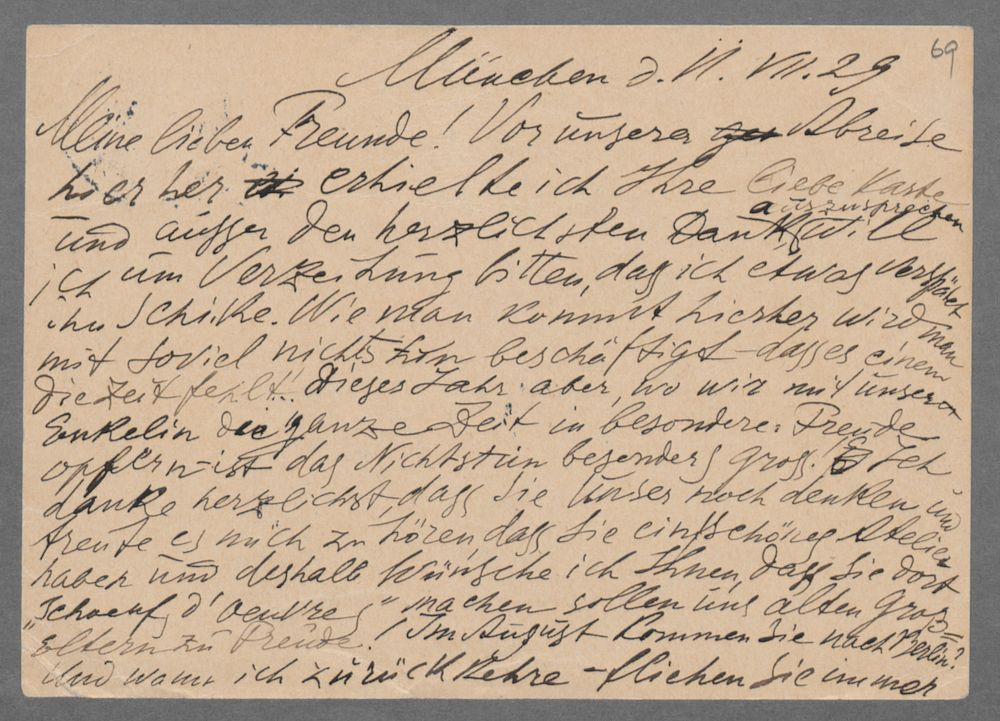 69
München d. 11. VII. 29
Meine lieben Freunde! Vor unserer Abreise
hierher erhielte ich Ihre liebe Karte
und ausser den herzlichsten Dank auszusprechen will
ich um Verzeihung bitten, dass ich etwas verspätet
ihn schike. Wie man kommt hierher wird man
mit soviel nichts tun beschäftigt – dass es einem
die Zeit fehlt! Dieses Jahr aber, wo wir mit unserer
Enkelin die ganze Zeit in besondere Freude
opfern – ist das Nichtstun besonders gross. Ich
danke herzlichst, dass Sie unser noch denken und
freute es mich zu hören dass Sie ein schönes Atelier
haben und deshalb wünsche ich Ihnen, dass Sie dort
"Schoeufs d'oeuvres" machen sollen uns alten Gross=
eltern zu Freude! Im August kommen Sie nach Berlin?
Und wann ich zurückkehre – fliehen Sie immer